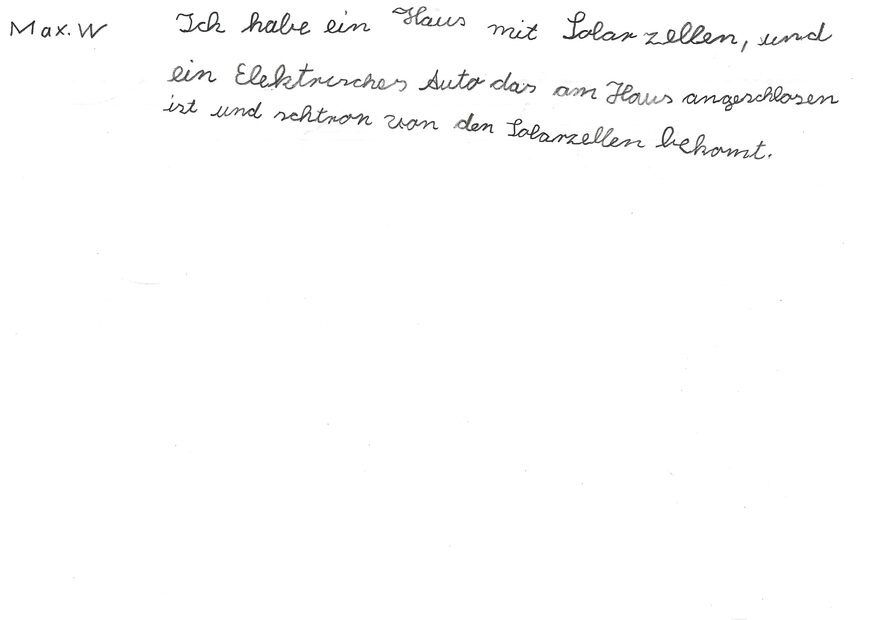 Max. W Ich habe ein Haus mit Solarzellen, und
ein Elektrisches Auto das am Haus angeschlosen
ist und schtron von den Solarzellen bekomt.